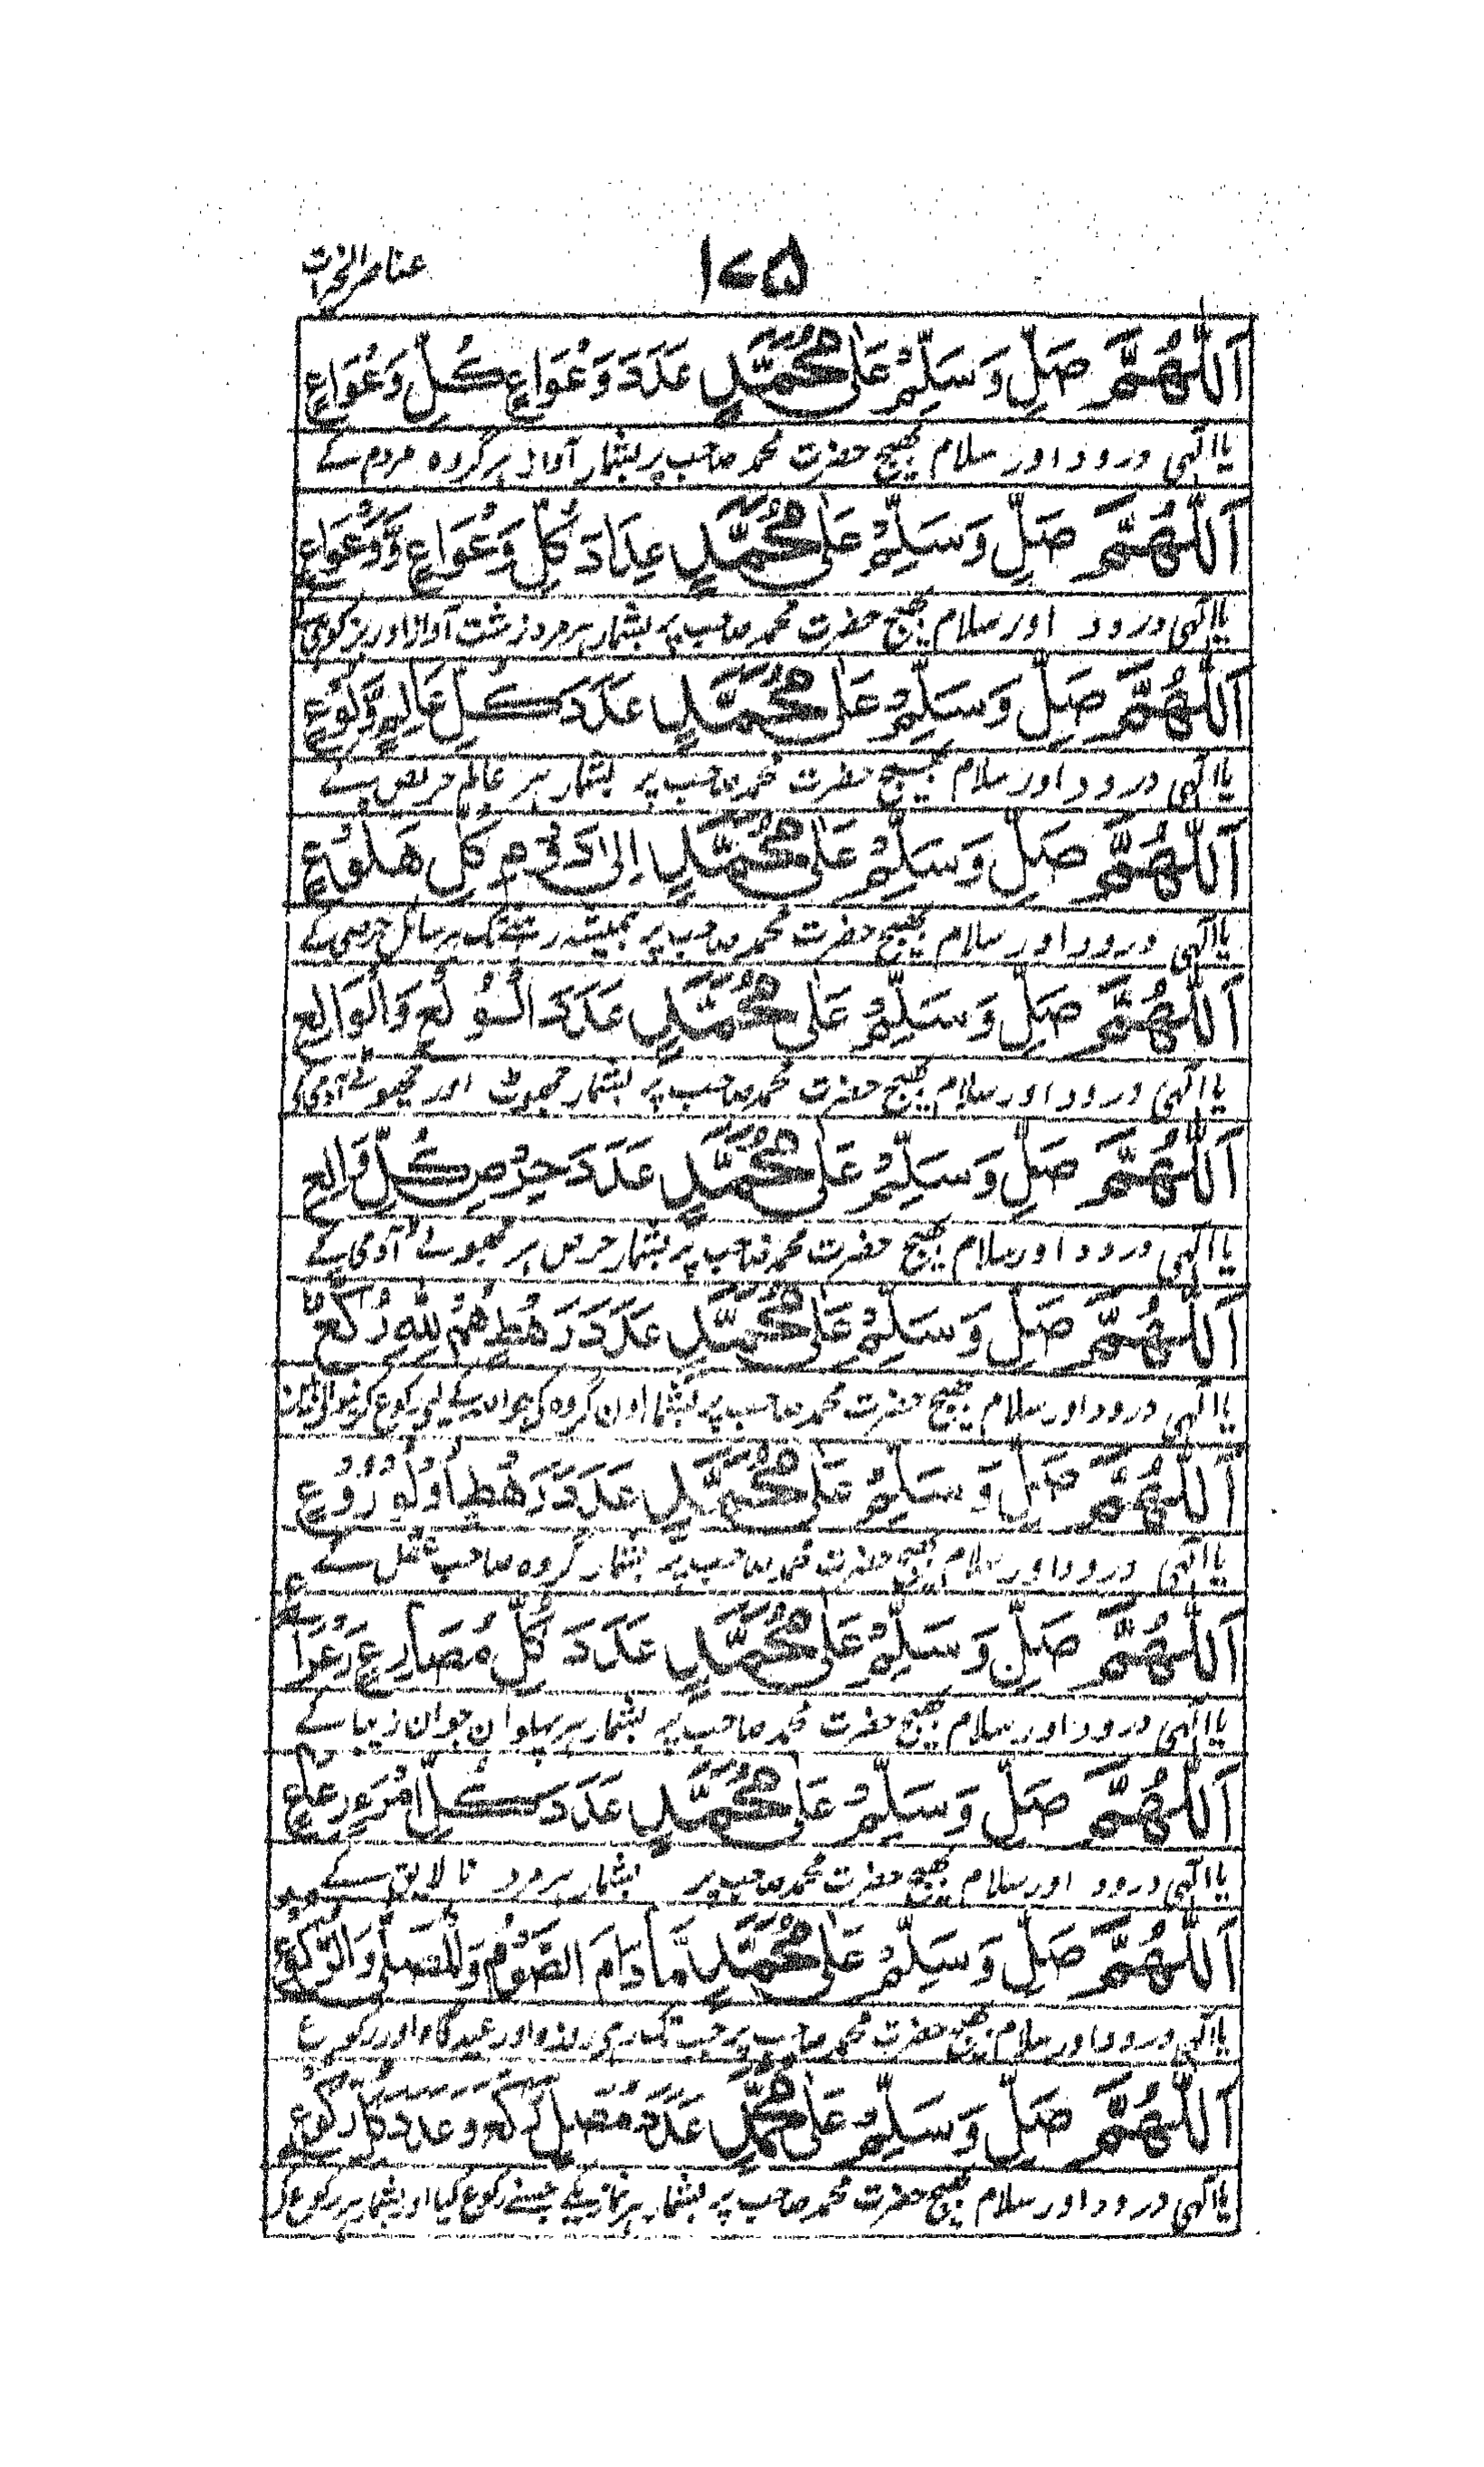 ۱۷۵
عناصر الخیرات
اَللّٰهُمَّ صَلِّ وَسَلِّمْ عَلٰى مُحَمَّدٍ عَدَدَ وَعْوَاعِ كُلِّ وَعْوَاعٍ
یا الٰہی درود اور سلام بھیج حضرت محمد صاحب پر بشمار آواز ہر گروہ مردم کے
اَللّٰهُمَّ صَلِّ وَسَلِّمْ عَلٰى مُحَمَّدٍ عِدَادَ كُلِّ وَعْوَاعٍ وَّوَعْوَاعٍ
یا الٰہی درود اور سلام بھیج حضرت محمد صاحب پر بشمار ہر مرد زشت آواز اور
اَللّٰهُمَّ صَلِّ وَسَلِّمْ عَلٰى مُحَمَّدٍ عَدَدَ كُلِّ عَالِمٍ وَّلُوْعٍ
یا الٰہی درود اور سلام بھیج حضرت محمد صاحب پر بشمار ہر عالم حریص کے
اَللّٰهُمَّ صَلِّ وَسَلِّمْ عَلٰى مُحَمَّدٍ اِلٰى كُلِّ هَلُوْعٍ
یا الٰہی درود اور سلام بھیج حضرت محمد صاحب پر ہمیشہ رہنے تک ہر سائل حرصی کے
اَللّٰهُمَّ صَلِّ وَسَلِّمْ عَلٰى مُحَمَّدٍ عَدَدَ الْوُلْعِ وَالْوَالِعِ
یا الٰہی درود اور سلام بھیج حضرت محمد صاحب پر بشمار جھوٹ اور جھوٹے آدمی کی
اَللّٰهُمَّ صَلِّ وَسَلِّمْ عَلٰى مُحَمَّدٍ عَدَدَ حِرْصِ كُلِّ وَالِعٍ
یا الٰہی درود اور سلام بھیج حضرت محمد صاحب پر بشمار حرص ہر جھوٹے آدمی کے
اَللّٰهُمَّ صَلِّ وَسَلِّمْ عَلٰى مُحَمَّدٍ عَدَدَ رَهْطٍ هُمْ لِلّٰهِ رُكَّعٌ
یا الٰہی درود اور سلام بھیج حضرت محمد صاحب پر بشمار اون گروہ کی جو
اَللّٰهُمَّ صَلِّ وَسَلِّمْ عَلٰى مُحَمَّدٍ عَدَدَ رَهْطٍ اُولُوْ رُوْعٍ
یا الٰہی درود اور سلام بھیج حضرت محمد صاحب پر بشمار گروہ صاحب عقل کے
اَللّٰهُمَّ صَلِّ وَسَلِّمْ عَلٰى مُحَمَّدٍ عَدَدَ كُلِّ مُصَارِعٍ رَعْرَاعٍ
یا الٰہی درود اور سلام بھیج حضرت محمد صاحب پر بشمار ہر پہلوان جوان زیبا کے
اَللّٰهُمَّ صَلِّ وَسَلِّمْ عَلٰى مُحَمَّدٍ عَدَدَ كُلِّ امْرَءٍ
یا الٰہی درود اور سلام بھیج حضرت محمد صاحب پر بشمار ہر مرد نا لایق کے
اَللّٰهُمَّ صَلِّ وَسَلِّمْ عَلٰى مُحَمَّدٍ مَّادَامَ الصَّوْمُ وَالْمُصَلّٰى وَالرُّكُوْعُ
یا الٰہی درود اور سلام بھیج حضرت محمد صاحب پر جب تک رہی روزہ اور عیدگاہ اور رکوع
اَللّٰهُمَّ صَلِّ وَسَلِّمْ عَلٰى مُحَمَّدٍ عَدَدَ مُصَلٍّ رَكَعَ وَعَدَدَ كُلِّ رُكُوْعٍ
یا الٰہی درود اور سلام بھیج حضرت محمد صاحب پر بشمار ہر نمازی کے جسنے رکوع کیا اور بشمار ہر رکوع کی